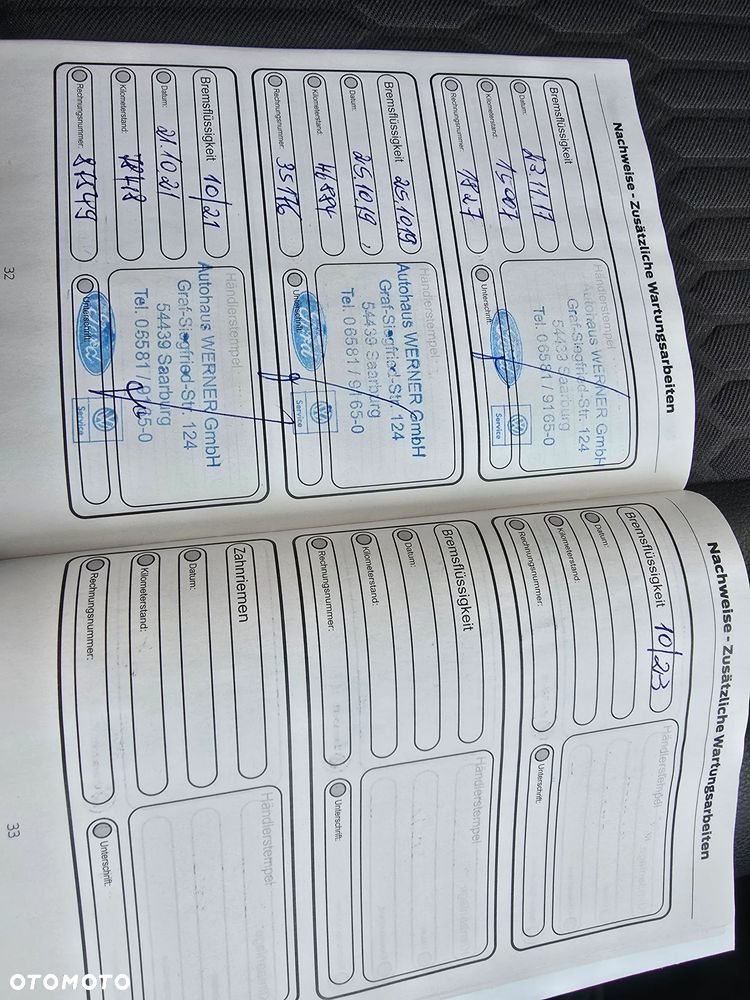 Nachweise - Zusätzliche Wartungsarbeiten
Bremsflüssigkeit
Datum: 23.11.17
Kilometerstand:
Rechnungsnummer: 1827
Händlerstempel
Autohaus WERNER GmbH
Graf-Siegfried-Str. 124
54439 Saarburg
Tel. 06581 / 9165-0
Unterschrift:
Service
Bremsflüssigkeit 25.10.19
Datum: 25.10.19
Kilometerstand:
Rechnungsnummer: 35176
Händlerstempel
Autohaus WERNER GmbH
Graf-Siegfried-Str. 124
54439 Saarburg
Tel. 06581 / 9165-0
Unterschrift:
Service
Bremsflüssigkeit 10/21
Datum: 21.10.21
Kilometerstand:
Rechnungsnummer: 81549
Händlerstempel
Autohaus WERNER GmbH
Graf-Siegfried-Str. 124
54439 Saarburg
Tel. 06581 / 9165-0
Unterschrift:
Service
32
Nachweise - Zusätzliche Wartungsarbeiten
Bremsflüssigkeit 10/23
Datum:
Kilometerstand:
Rechnungsnummer:
Händlerstempel
Unterschrift:
Bremsflüssigkeit
Datum:
Kilometerstand:
Rechnungsnummer:
Händlerstempel
Unterschrift:
Zahnriemen
Datum:
Kilometerstand:
Rechnungsnummer:
Händlerstempel
Unterschrift:
33
OTOMOTO